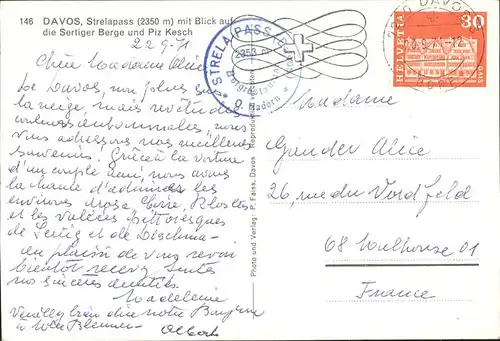 146 DAVOS, Strelapass (2350 m) mit Blick auf
die Sertiger Berge und Piz Kesch
22 9-71
Chère Madame Alice
De Davos, non plus sous
la neige, mais revêtu de
couleurs automnales, nous
vous adressons nos meilleurs
souvenirs. Grâce à la voiture
d'un couple ami nous avons
la chance d'admirer les
environs Arosa, Coire, Klosters
et les vallées pittoresques
de Sertig et de Dischma-
au plaisir de vous revoir
bientôt recevez toutes
nos sincères amitiés.
Madeleine
Veuillez bien dire notre Bonjour
à Mme Blenner- Albert
STRELA PASS
2353
Bergrestaurant
Photo und Verlag: F. Faiss, Davos
HELVETIA
30
DAVOS
DORF
Madame
Gander Alice
26, rue du Nordfeld
68 Mulhouse 01
France